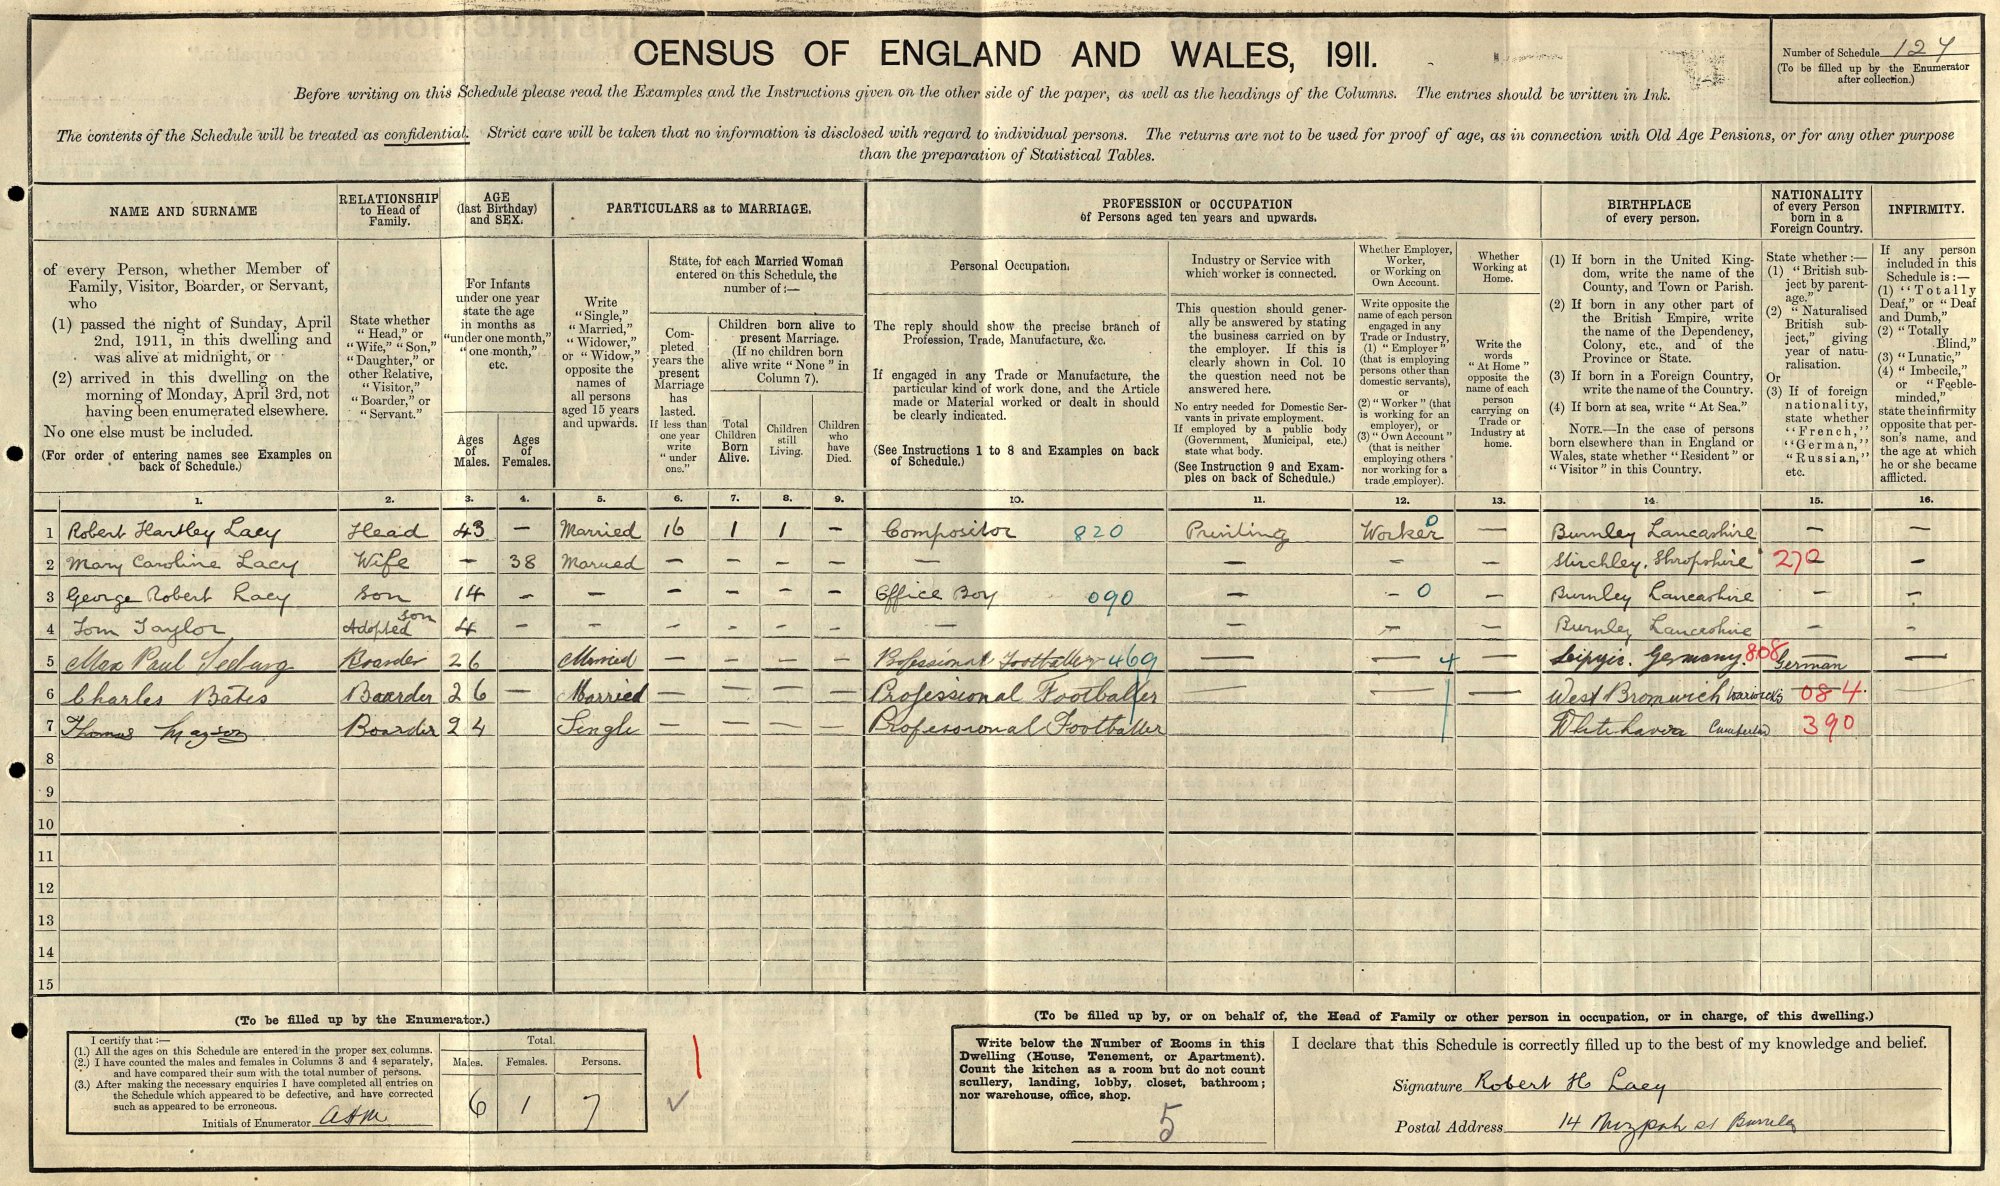 CENSUS OF ENGLAND AND WALES, 1911.
Number of Schedule 127
(To be filled up by the Enumerator
after collection.)
Before writing on this Schedule please read the Examples and the Instructions given on the other side of the paper, as well as the headings of the Columns. The entries should be written in Ink.
The contents of the Schedule will be treated as confidential. Strict care will be taken that no information is disclosed with regard to individual persons. The returns are not to be used for proof of age, as in connection with Old Age Pensions, or for any other purpose
than the preparation of Statistical Tables.
NAME AND SURNAME
of every Person, whether Member of
Family, Visitor, Boarder, or Servant,
who
(1) passed the night of Sunday, April
2nd, 1911, in this dwelling and
was alive at midnight, or
(2) arrived in this dwelling on the
morning of Monday, April 3rd, not
having been enumerated elsewhere.
No one else must be included.
(For order of entering names see Examples on
back of Schedule.)
RELATIONSHIP
to Head of
Family.
State whether
"Head," or
"Wife," "Son,"
"Daughter," or
other Relative,
"Visitor,"
"Boarder," or
"Servant."
AGE
(last Birthday)
and SEX.
For Infants
under one year
state the age
in months as
"under one month,"
"one month,"
etc.
Ages
of
Males.
Ages
of
Females.
PARTICULARS as to MARRIAGE.
Write
"Single,"
"Married,"
"Widower,"
or "Widow,"
opposite the
names of
all persons
aged 15 years
and upwards.
State, for each Married Woman
entered on this Schedule, the
number of:—
Com-
pleted
years the
present
Marriage
has
lasted.
If less than
one year
write
"under
one."
Children born alive to
present Marriage.
(If no children born
alive write "None" in
Column 7).
Total
Children
Born
Alive.
Children
still
Living.
Children
who
have
Died.
PROFESSION or OCCUPATION
of Persons aged ten years and upwards.
Personal Occupation.
The reply should show the precise branch of
Profession, Trade, Manufacture, &c.
If engaged in any Trade or Manufacture, the
particular kind of work done, and the Article
made or Material worked or dealt in should
be clearly indicated.
(See Instructions 1 to 8 and Examples on back
of Schedule.)
Industry or Service with
which worker is connected.
This question should gener-
ally be answered by stating
the business carried on by
the employer. If this is
clearly shown in Col. 10
the question need not be
answered here.
No entry needed for Domestic Ser-
vants in private employment.
If employed by a public body
(Government, Municipal, etc.)
state what body.
(See Instruction 9 and Exam-
ples on back of Schedule.)
Whether Employer,
Worker,
or Working on
Own Account.
Write opposite the
name of each person
engaged in any
Trade or Industry,
(1) "Employer"
(that is employing
persons other than
domestic servants),
or
(2) "Worker" (that
is working for an
employer), or
(3) "Own Account"
(that is neither
employing others
nor working for a
trade employer).
Whether
Working at
Home.
Write the
words
"At Home"
opposite the
name of each
person
carrying on
Trade or
Industry at
home.
BIRTHPLACE
of every person.
(1) If born in the United King-
dom, write the name of the
County, and Town or Parish.
(2) If born in any other part of
the British Empire, write
the name of the Dependency,
Colony, etc., and of the
Province or State.
(3) If born in a Foreign Country,
write the name of the Country.
(4) If born at sea, write "At Sea."
NOTE.—In the case of persons
born elsewhere than in England or
Wales, state whether "Resident" or
"Visitor" in this Country.
NATIONALITY
of every Person
born in a
Foreign Country.
State whether :—
(1) "British sub-
ject by parent-
age."
(2) "Naturalised
British sub-
ject," giving
year of natu-
ralisation.
Or
(3) If of foreign
nationality,
state whether
"French,"
"German,"
"Russian,"
etc.
INFIRMITY.
If any person
included in this
Schedule is :—
(1) "Totally
Deaf," or "Deaf
and Dumb,"
(2) "Totally
Blind,"
(3) "Lunatic,"
(4) "Imbecile,"
or "Feeble-
minded,"
state the infirmity
opposite that per-
son's name, and
the age at which
he or she became
afflicted.
1. 2. 3. 4. 5. 6. 7. 8. 9. 10. 11. 12. 13. 14. 15. 16.
1 Robert Hartley Lacy Head 43 — Married 16 1 1 — Compositor 820 Printing Worker 0 — Burnley Lancashire — —
2 Mary Caroline Lacy Wife — 38 Married — — — — — — — — Stirchley, Shropshire 272 — —
3 George Robert Lacy Son 14 — — — — — — Office Boy 090 — — 0 — Burnley Lancashire — —
4 Tom Taylor Adopted son 4 — — — — — — — — — — Burnley Lancashire — —
5 Max Paul Seeburg Boarder 26 Married — — — — Professional Footballer 469 — — 4 — Leipzic. Germany. 808 German —
6 Charles Bates Boarder 26 — Married — — — — Professional Footballer — — — West Bromwich Warwicks 08-4
7 Thomas Mayson Boarder 24 Single — — — — Professional Footballer Whitehaven Cumberland 390
8
9
10
11
12
13
14
15
(To be filled up by the Enumerator.)
I certify that :—
(1.) All the ages on this Schedule are entered in the proper sex columns.
(2.) I have counted the males and females in Columns 3 and 4 separately,
and have compared their sum with the total number of persons.
(3.) After making the necessary enquiries I have completed all entries on
the Schedule which appeared to be defective, and have corrected
such as appeared to be erroneous.
Initials of Enumerator AHM
Total.
Males. Females. Persons.
6 1 7
1
(To be filled up by, or on behalf of, the Head of Family or other person in occupation, or in charge, of this dwelling.)
Write below the Number of Rooms in this
Dwelling (House, Tenement, or Apartment).
Count the kitchen as a room but do not count
scullery, landing, lobby, closet, bathroom;
nor warehouse, office, shop.
5
I declare that this Schedule is correctly filled up to the best of my knowledge and belief.
Signature Robert H Lacy
Postal Address 14 Mizpah St Burnley